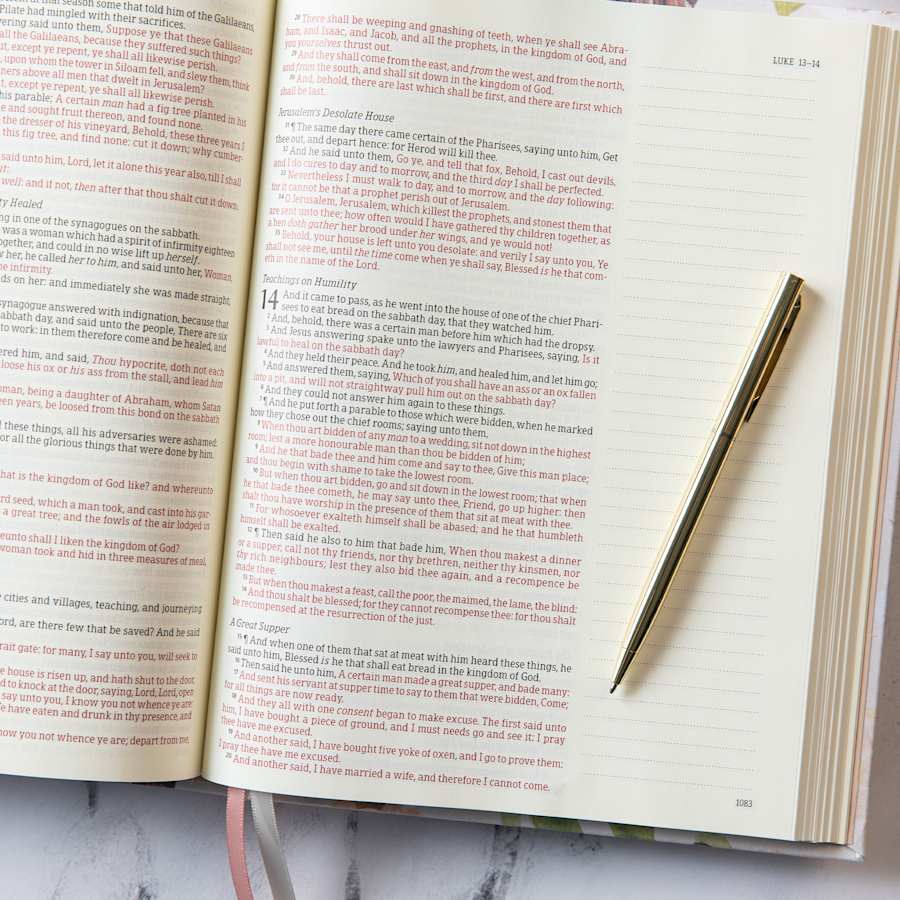 at season some that told him of the Galilaeans,
Pilate had mingled with their sacrifices.
ering said unto them, Suppose ye that these Galilaeans
all the Galilaeans, because they suffered such things?
ut, except ye repent, ye shall all likewise perish.
upon whom the tower in Siloam fell, and slew them, think
ners above all men that dwelt in Jerusalem?
t, except ye repent, ye shall all likewise perish.
his parable; A certain man had a fig tree planted in his
e and sought fruit thereon, and found none.
the dresser of his vineyard, Behold, these three years I
this fig tree, and find none: cut it down; why cumber-
said unto him, Lord, let it alone this year also, till I shall
well: and if not, then after that thou shalt cut it down.
ty Healed
ng in one of the synagogues on the sabbath.
was a woman which had a spirit of infirmity eighteen
ogether, and could in no wise lift up herself.
w her, he called her to him, and said unto her, Woman,
ne infirmity.
ds on her: and immediately she was made straight,
synagogue answered with indignation, because that
abbath day, and said unto the people, There are six
to work: in them therefore come and be healed, and
ered him, and said, Thou hypocrite, doth not each
loose his ox or his ass from the stall, and lead him
oman, being a daughter of Abraham, whom Satan
een years, be loosed from this bond on the sabbath
d these things, all his adversaries were ashamed:
or all the glorious things that were done by him.
hat is the kingdom of God like? and whereunto
ard seed, which a man took, and cast into his gar-
a great tree; and the fowls of the air lodged in
eunto shall I liken the kingdom of God?
woman took and hid in three measures of meal,
cities and villages, teaching, and journeying
ord, are there few that be saved? And he said
rait gate: for many, I say unto you, will seek to
e house is risen up, and hath shut to the door,
d to knock at the door, saying, Lord, Lord, open
say unto you, I know you not whence ye are:
e have eaten and drunk in thy presence, and
now you not whence ye are; depart from me,
28 There shall be weeping and gnashing of teeth, when ye shall see Abra-
ham, and Isaac, and Jacob, and all the prophets, in the kingdom of God, and
you yourselves thrust out.
29 And they shall come from the east, and from the west, and from the north,
and from the south, and shall sit down in the kingdom of God.
30 And, behold, there are last which shall be first, and there are first which
shall be last.
Jerusalem's Desolate House
31 ¶ The same day there came certain of the Pharisees, saying unto him, Get
thee out, and depart hence: for Herod will kill thee.
32 And he said unto them, Go ye, and tell that fox, Behold, I cast out devils,
and I do cures to day and to morrow, and the third day I shall be perfected.
33 Nevertheless I must walk to day, and to morrow, and the day following:
for it cannot be that a prophet perish out of Jerusalem.
34 O Jerusalem, Jerusalem, which killest the prophets, and stonest them that
are sent unto thee; how often would I have gathered thy children together, as
a hen doth gather her brood under her wings, and ye would not!
35 Behold, your house is left unto you desolate: and verily I say unto you, Ye
shall not see me, until the time come when ye shall say, Blessed is he that com-
eth in the name of the Lord.
Teachings on Humility
14 And it came to pass, as he went into the house of one of the chief Phari-
sees to eat bread on the sabbath day, that they watched him.
2 And, behold, there was a certain man before him which had the dropsy.
3 And Jesus answering spake unto the lawyers and Pharisees, saying, Is it
lawful to heal on the sabbath day?
4 And they held their peace. And he took him, and healed him, and let him go;
5 And answered them, saying, Which of you shall have an ass or an ox fallen
into a pit, and will not straightway pull him out on the sabbath day?
6 And they could not answer him again to these things.
7 ¶ And he put forth a parable to those which were bidden, when he marked
how they chose out the chief rooms; saying unto them,
8 When thou art bidden of any man to a wedding, sit not down in the highest
room; lest a more honourable man than thou be bidden of him;
9 And he that bade thee and him come and say to thee, Give this man place;
and thou begin with shame to take the lowest room.
10 But when thou art bidden, go and sit down in the lowest room; that when
he that bade thee cometh, he may say unto thee, Friend, go up higher: then
shalt thou have worship in the presence of them that sit at meat with thee.
11 For whosoever exalteth himself shall be abased; and he that humbleth
himself shall be exalted.
12 ¶ Then said he also to him that bade him, When thou makest a dinner
or a supper, call not thy friends, nor thy brethren, neither thy kinsmen, nor
thy rich neighbours; lest they also bid thee again, and a recompence be
made thee.
13 But when thou makest a feast, call the poor, the maimed, the lame, the blind:
14 And thou shalt be blessed; for they cannot recompense thee: for thou shalt
be recompensed at the resurrection of the just.
A Great Supper
15 ¶ And when one of them that sat at meat with him heard these things, he
said unto him, Blessed is he that shall eat bread in the kingdom of God.
16 Then said he unto him, A certain man made a great supper, and bade many:
17 And sent his servant at supper time to say to them that were bidden, Come;
for all things are now ready.
18 And they all with one consent began to make excuse. The first said unto
him, I have bought a piece of ground, and I must needs go and see it: I pray
thee have me excused.
19 And another said, I have bought five yoke of oxen, and I go to prove them:
I pray thee have me excused.
20 And another said, I have married a wife, and therefore I cannot come.
LUKE 13–14
1083